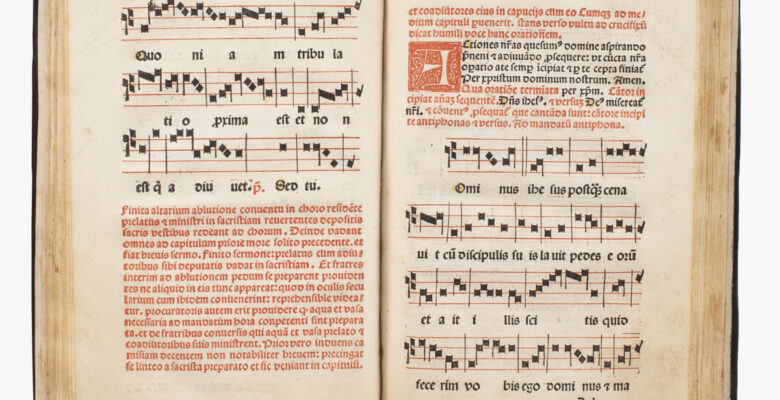 Quo ni a m tribu la
ti o ꝓxima est et no n
est q̃ a diu uet. ꝓ̃. Sed tu.
Finita altarium ablutione conuentu in choro residẽte
prelatus ⁊ ministri in sacristiam reuertentes depositis
sacris vestibus redeant ad chorum. Deinde vadant
omnes ad capitulum priore more solito precedente. et
fiat breuis sermo. Finito sermone: prelatus cum adiu-
toribus sibi deputatis vadat in sacristiam. Et fratres
interim ad ablutionem pedum se preparent prouiden
tes ne aliquid in eis tunc appareat: quod in oculis secu
larium cum ibidem conuenerint: reprehensible videa/
tur. procuratoris autem erit prouidere ꝙ aqua et vasa
necessaria ad mandatum hora conpetenti sint prepara
ta. et de fratribus conuersis qui aquã et vasa prelato ⁊
coadiutoribus suis ministrent. Prior vero indueno ca
misiam decentem non notabiliter breuem: precingat
se linteo a sacrista preparato et sic veniant in capitulũ.
et coadiutores eius in capucijs cum eo Cumqꝫ ad me/
dium capituli ꝑuenerit. stans verso vultu ad crucifixũ
dicat humili voce hanc orationem.
Actiones nr̃as quesumꝰ domine aspirando
p̃ueni et adiuuãdo ꝓsequere: vt cũcta nr̃a
oꝛatio a te semꝑ incipiat ⁊ ꝑ te cepta finiat̃
Per xp̃istum dominum nostrum. Amen.
Qua oratiõe termĩata per xp̃m. Cãtor in
cipiat añas sequentẽ. Dñs ihe͂s. ⁊ versus Deꝰ misereat̃
nr̃i. ⁊ cõuentꝰ ꝓsequat̃ que cantãda sunt: cãtore incipi͂
te antiphonas ⁊ versus. Ad mandatũ antiphona.
Omi nus ihe sus postq̃ꝫ cena
uit cũ discipulis su is la uit pedes e orũ
et a it i llis sci tis quid
fece rim vo bis ego domi nus ⁊ ma